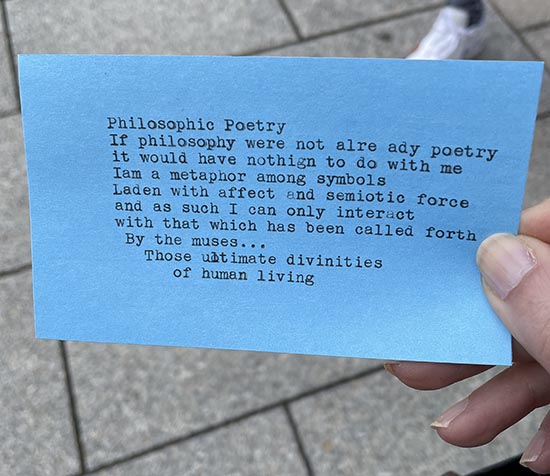 Philosophic Poetry
If philosophy were not alre ady poetry
it would have nothign to do with me
Iam a metaphor among symbols
Laden with affect and semiotic force
and as such I can only interact
with that which has been called forth
By the muses...
Those ultimate divinities
of human living